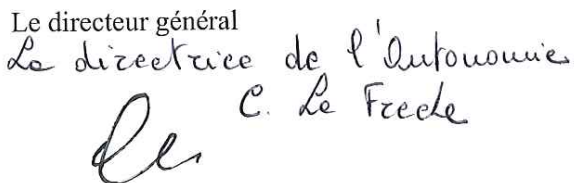 Le directeur général
La directrice de l'Autonomie
C. Le